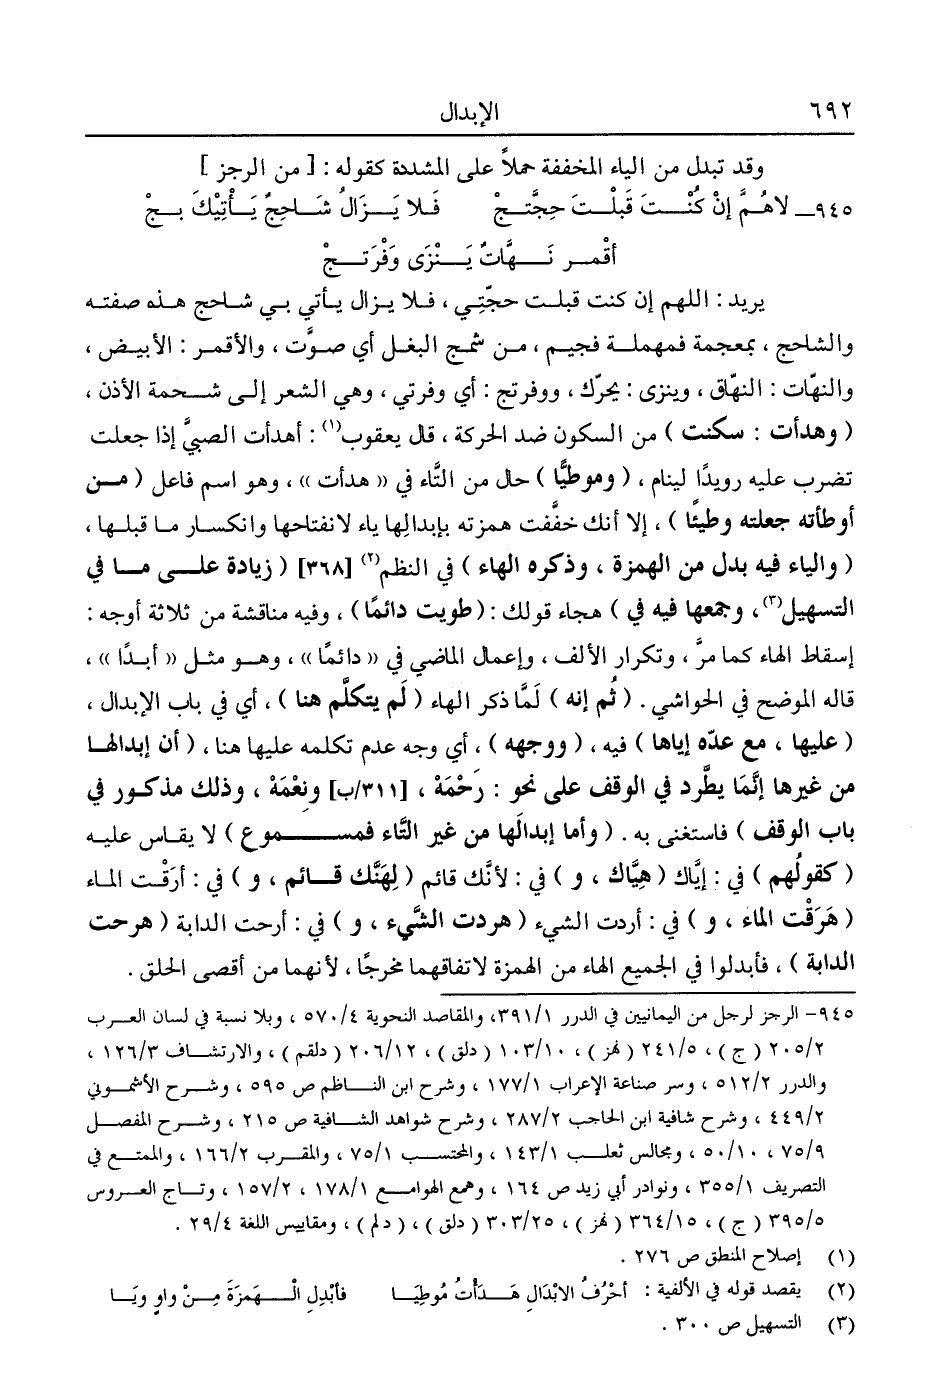 ٦٩٢ الإبدال
وقد تبدل من الياء المخففة حملاً على المشددة كقوله : [ من الرجز ]
٩٤٥ــ لاهُمَّ إنْ كُنْتَ قَبِلْتَ حِجَّتِجْ فَلا يَزَالُ شَاحِجٌ يَأْتِيْكَ بِجْ
أقْمر نَهَّاتٌ يَنْزَى وَفْرَتِجْ
يريد : اللهم إن كنت قبلت حجّتِي ، فلا يزال يأتي بي شاحج هذه صفته
والشاحج ، بمعجمة فمهملة فجيم ، من شحج البغل أي صوَّت ، والأقمر : الأبيض ،
والنهّات : النهّاق ، وينزى : يحرّك ، ووفرتج : أي وفرتي ، وهي الشعر إلى شحمة الأذن ،
( وهدأت : سكنت ) من السكون ضد الحركة ، قال يعقوب(١) : أهدأت الصبيَّ إذا جعلت
تضرب عليه رويدًا لينام ، ( وموطيًّا ) حال من التَّاء في « هدأت » ، وهو اسم فاعل ( من
أوطأته جعلته وطيئًا ) ، إلا أنك خفَّفت همزته بإبدالها ياء لانفتاحها وانكسار ما قبلها ،
( والياء فيه بدل من الهمزة ، وذكره الهاء ) في النظم(٢) [٣٦٨] ( زيادة على ما في
التسهيل(٣)، وجمعها فيه في ) هجاء قولك : ( طويت دائمًا ) ، وفيه مناقشة من ثلاثة أوجه :
إسقاط الهاء كما مرَّ ، وتكرار الألف ، وإعمال الماضي في « دائمًا » ، وهو مثل « أبدًا » ،
قاله الموضح في الحواشي . ( ثُم إنه ) لَمَّا ذكر الهاء ( لَم يتكلَّم هنا ) ، أي في باب الإبدال ،
( عليها ، مع عدّه إياها ) فيه ، ( ووجهه ) ، أي وجه عدم تكلمه عليها هنا ، ( أن إبدالها
من غيرها إنَّمَا يطَّرد في الوقف على نحو : رَحْمَهْ ، [٣١١/ب] ونِعْمَهْ ، وذلك مذكور في
باب الوقف ) فاستغنى به . ( وأما إبدالَها من غير التَّاء فمسموع ) لا يقاس عليه
( كقولُهم ) في : إيَّاك ( هِيَّاك ، و ) في : لأنَّك قائم ( لِهَنَّك قائم ، و ) في : أرَقْت الماء
( هَرَقْت الماء ، و ) في : أردت الشيء ( هردت الشَّيء ، و ) في : أرحت الدابة ( هرحت
الدابة ) ، فأبدلوا في الجميع الهاء من الهمزة لاتفاقهما مخرجًا ، لأنهما من أقصى الحلق .
٩٤٥- الرجز لرجل من اليمانيين في الدرر ٣٩١/١، والمقاصد النحوية ٥٧٠/٤ ، وبلا نسبة في لسان العرب
٢٠٥/٢ ( ج ) ، ٢٤١/٥ ( نهز ) ، ١٠٣/١٠ ( دلق ) ، ٢٠٦/١٢ ( دلقم ) ، والارتشاف ١٢٦/٣ ،
والدرر ٥١٢/٢ ، وسر صناعة الإعراب ١٧٧/١ ، وشرح ابن الناظم ص ٥٩٥ ، وشرح الأشموني
٤٤٩/٢ ، وشرح شافية ابن الحاجب ٢٨٧/٢ ، وشرح شواهد الشافية ص ٢١٥ ، وشرح المفصل
٧٥/٩ ، ٥٠/١٠ ، ومجالس ثعلب ١٤٣/١ ، والمحتسب ٧٥/١ ، والمقرب ١٦٦/٢ ، والممتع في
التصريف ٣٥٥/١ ، ونوادر أبي زيد ص ١٦٤ ، وهمع الهوامع ١٧٨/١ ، ١٥٧/٢ ، وتاج العروس
٣٩٥/٥ ( ج ) ، ٣٦٤/١٥ ( نهز ) ، ٣٠٣/٢٥ ( دلق ) ، ( دلم ) ، ومقاييس اللغة ٢٩/٤ .
(١) إصلاح المنطق ص ٢٧٦ .
(٢) يقصد قوله في الألفية : أحْرُفُ الابْدَالِ هَدَأْتُ مُوطِيَا فأبْدِلِ الْهَمْزَةَ مِنْ واوٍ ويَا
(٣) التسهيل ص ٣٠٠ .